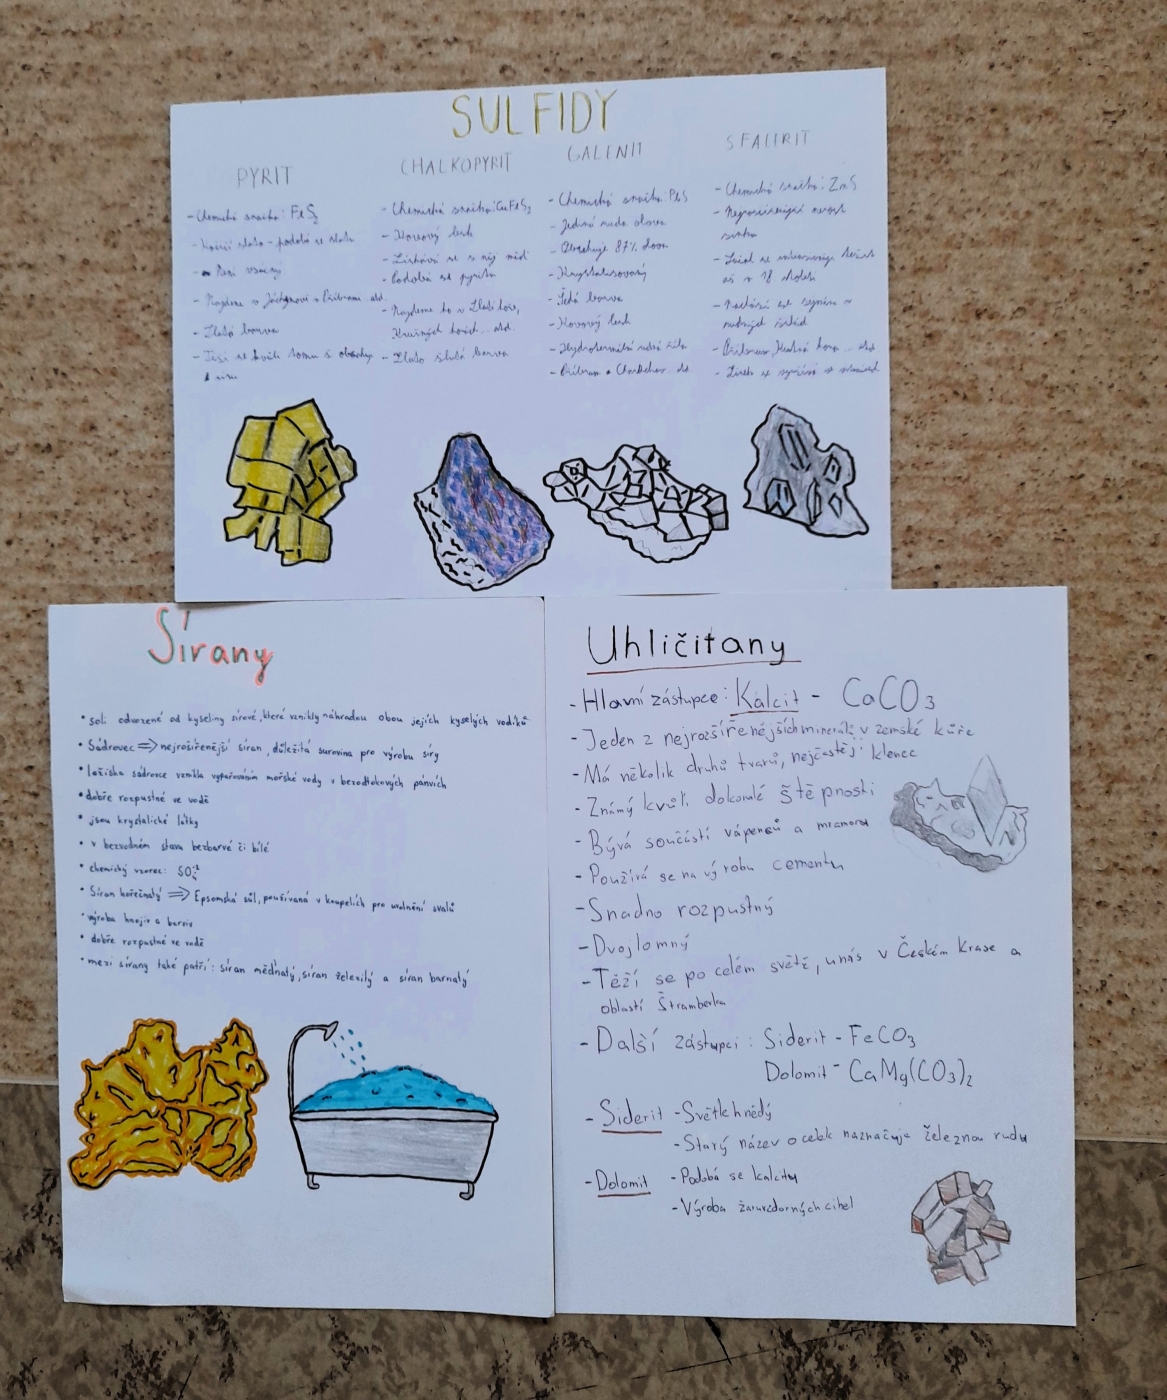 SULFIDY
PYRIT
- Chemická značka: FeS2
- Kočičí zlato - podobá se zlatu
- Není vzácný
- Najdeme v Jáchymově, Příbrami atd.
- Zlatá barva
CHALKOPYRIT
- Chemická značka: CuFeS2
- Kovový lesk
- Získává se z něj měď
- Podobá se pyritu
- Najdeme ho v Zlaté hoře,
Krušných horách... atd.
- Zlato žlutá barva
GALENIT
- Chemická značka: PbS
- Jediná ruda olova
- Obsahuje 87% olova
- Krystalizovaný
- Šedá barva
- Kovový lesk
- Hydrotermální rudní žíla
SFALERIT
- Chemická značka: ZnS
- Nejvýznamnější nerost
zinku
- Příbram, Kutná hora... atd
Sírany
• soli odvozené od kyseliny sírové, které vznikly náhradou obou jejích kyselých vodíků
• Sádrovec => nejrozšířenější síran, důležitá surovina pro výrobu síry
• ložiska sádrovce vznikla vypařováním mořské vody v bezodtokových pánvích
• dobře rozpustné ve vodě
• jsou krystalické látky
• v bezvodném stavu bezbarvé či bílé
• chemický vzorec: SO4-2
• Síran hořečnatý => Epsomská sůl, používaná v koupelích pro uvolnění svalů
• výroba hnojiv a barviv
• dobře rozpustné ve vodě
• mezi sírany také patří: síran měďnatý, síran železitý a síran barnatý
Uhličitany
- Hlavní zástupce: Kalcit - CaCO3
- Jeden z nejrozšířenějších minerálů v zemské kůře
- Má několik druhů tvarů, nejčastěji klence
- Známý kvůli dokonalé štěpnosti
- Bývá součástí vápenců a mramoru
- Používá se na výrobu cementu
- Snadno rozpustný
- Dvojlomný
- Těží se po celém světě, u nás v Českém Krase a
oblasti Štramberka
- Další zástupci: Siderit - FeCO3
Dolomit - CaMg(CO3)2
- Siderit - Světle hnědý
- Starý název ocelek naznačuje železnou rudu
- Dolomit - Podobá se kalcitu
- Výroba žáruvzdorných cihel